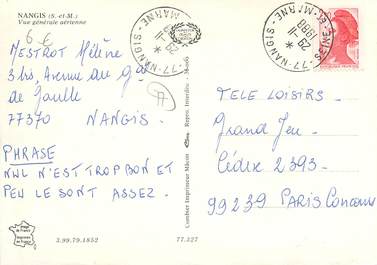 NANGIS (S.-et-M.)
Vue générale aérienne
6 €
MESTROT Hélène
3 bis, Avenue du Gal
de Gaulle
77370 NANGIS.
PHRASE
NUL N'EST TROP BON ET
PEU LE SONT ASSEZ.
3.99.79.1852
77.327
Combier Imprimeur Mâcon
Repro. Interdite
77-NANGIS
29
1988
77-NANGIS
SEINE-et-MARNE
29
1988
TELE LOISIRS.
Grand Jeu
Cédex 2393.
99239 PARIS Concours